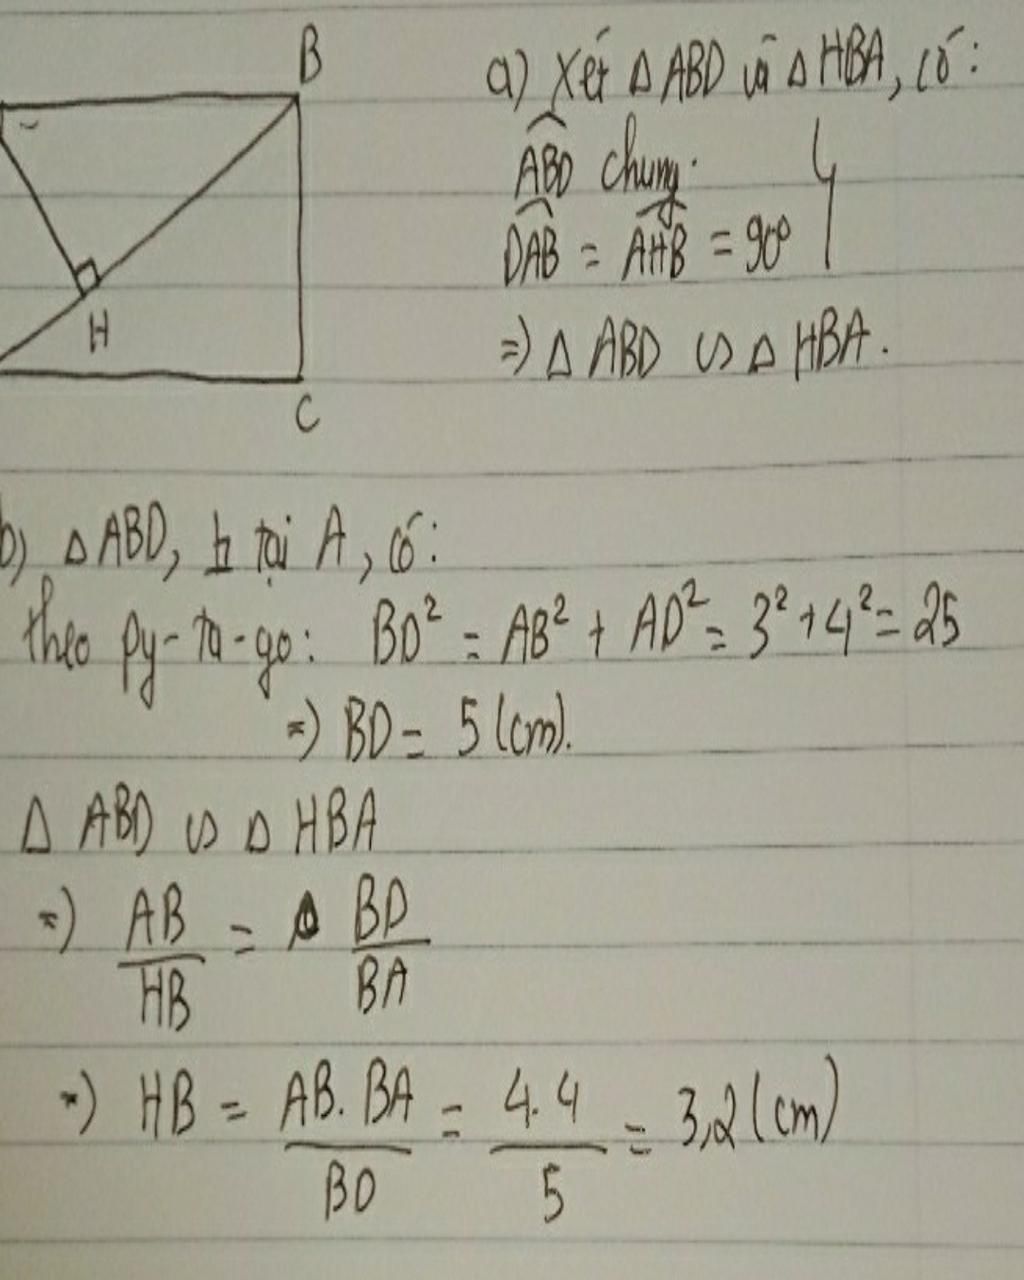 B
H
C
a) Xét Δ ABD và Δ HBA, có:
ABD chung.
DAB = AHB = 90°
=> Δ ABD ∽ Δ HBA.
b) Δ ABD, tại A, có:
theo py-ta-go: BD² = AB² + AD² = 3² + 4² = 25
=> BD = 5 (cm).
Δ ABD ∽ Δ HBA
=> AB/HB = BD/BA
=> HB = AB.BA/BD = 4.4/5 = 3,2 (cm)